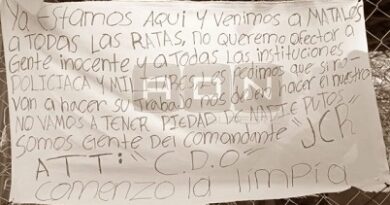 Ya Estamos Aqui y venimos a MATALOS
a TODAS LAS RATAS, NO queremo Afectar a
Gente inocente y a Todas Las instituciones
POLICIACA Y MILITARES Les Pedimos que si no
van a hacer su Trabajo nos dejen hacer el nuestro
NO VAMOS A TENER PIEDAD DE NADIE PUTOS
Somos Gente Del comandante "JCR"
ATTi "C.D.O"
comenzo la limpia
ADN